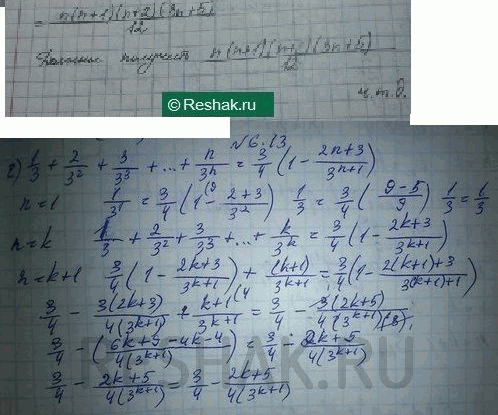 = n(n+1)(n+2)(3n+5)/12
Должны получить n(n+1)(n+2)(3n+5)/12
ч.т.д.
© Reshak.ru
№6.13
2) 1/3 + 2/3² + 3/3³ + ... + n/3ⁿ = 3/4 (1 - (2n+3)/3ⁿ⁺¹)
n=1 1/3¹ = 3/4 (1 - (2+3)/3²) 1/3 = 3/4 ((9-5)/9) 1/3 = 1/3
n=k 1/3 + 2/3² + 3/3³ + ... + k/3ᵏ = 3/4 (1 - (2k+3)/3ᵏ⁺¹)
n=k+1 3/4 (1 - (2k+3)/3ᵏ⁺¹) + (k+1)/3ᵏ⁺¹ = 3/4 (1 - (2(k+1)+3)/3⁽ᵏ⁺¹⁾⁺¹)
3/4 - 3(2k+3)/4(3ᵏ⁺¹) + (k+1)/3ᵏ⁺¹ (4 = 3/4 - 3(2k+5)/4(3ᵏ⁺¹)(3)
3/4 - (6k+9-4k-4)/4(3ᵏ⁺¹) = 3/4 - (2k+5)/4(3ᵏ⁺¹)
3/4 - (2k+5)/4(3ᵏ⁺¹) = 3/4 - (2k+5)/4(3ᵏ⁺¹)
RESHAK.RU